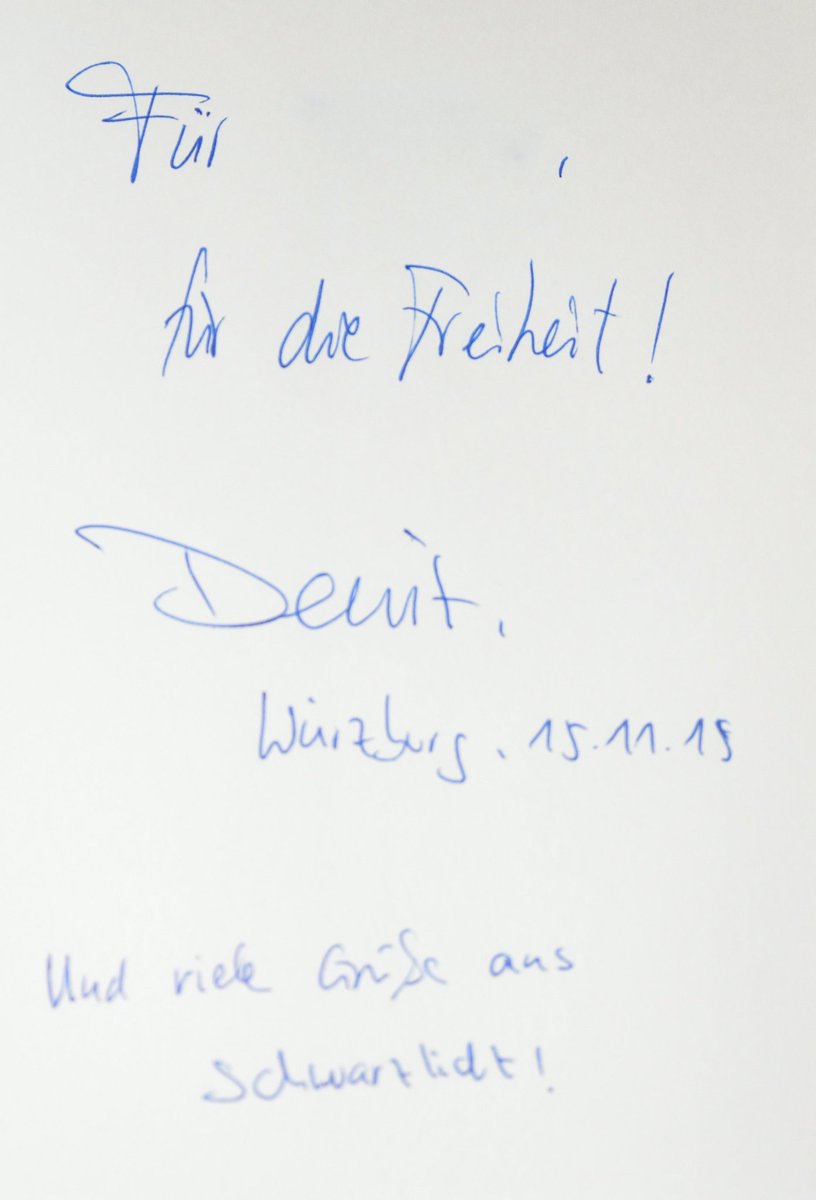 Für ,
für die Freiheit!
Würzburg, 15.11.15
Und viele Grüße aus
Schwarzlicht!